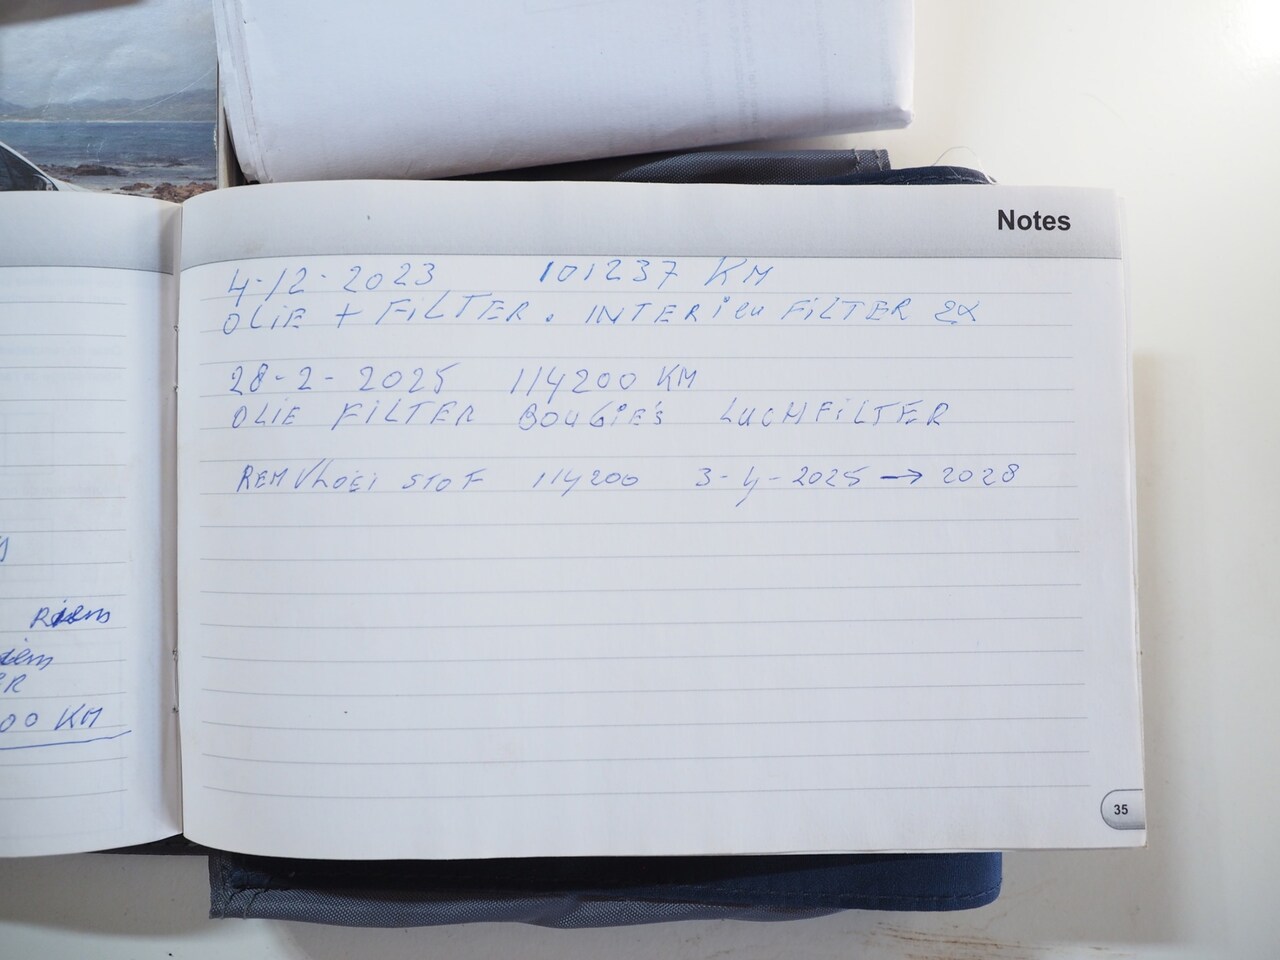 Notes
4-12-2023 101237 KM
OLIE + FILTER. INTERIEU FILTER 2X
28-2-2025 114200 KM
OLIE FILTER BOUGIE'S LUCHFILTER
REMVLOEISTOF 114200 3-4-2025 → 2028
Riem
iem
ER
00 KM
35